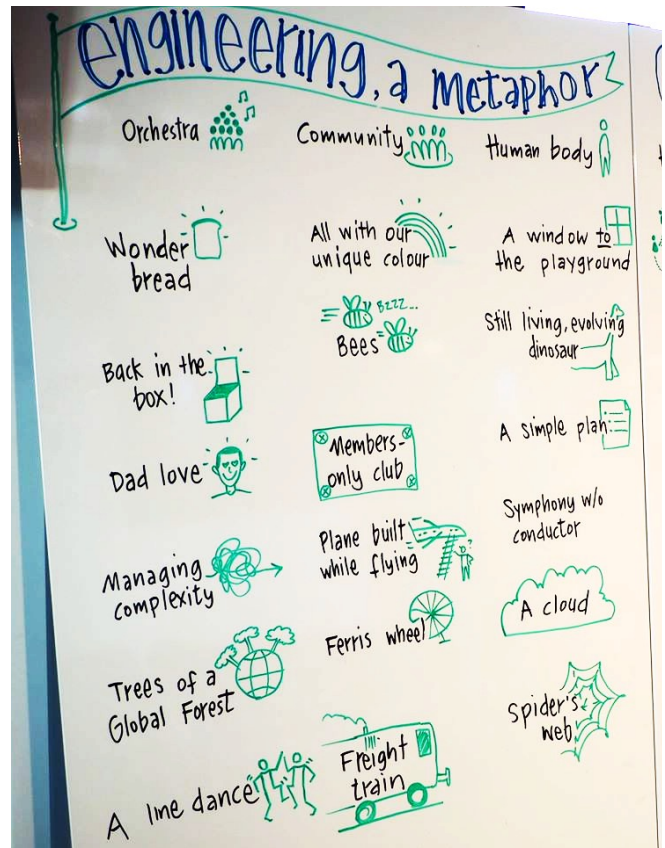 engineering, a metaphor
Orchestra
Wonder
bread
Back in the
box!
Dad love
Managing
complexity
Trees of a
Global Forest
A line dance
Community
All with our
unique colour
Bzzz...
Bees
Members-
only club
Plane built
while flying
Ferris wheel
Freight
train
Human body
A window to
the playground
Still living, evolving
dinosaur
A simple plan
Symphony w/o
conductor
A cloud
Spider's
web